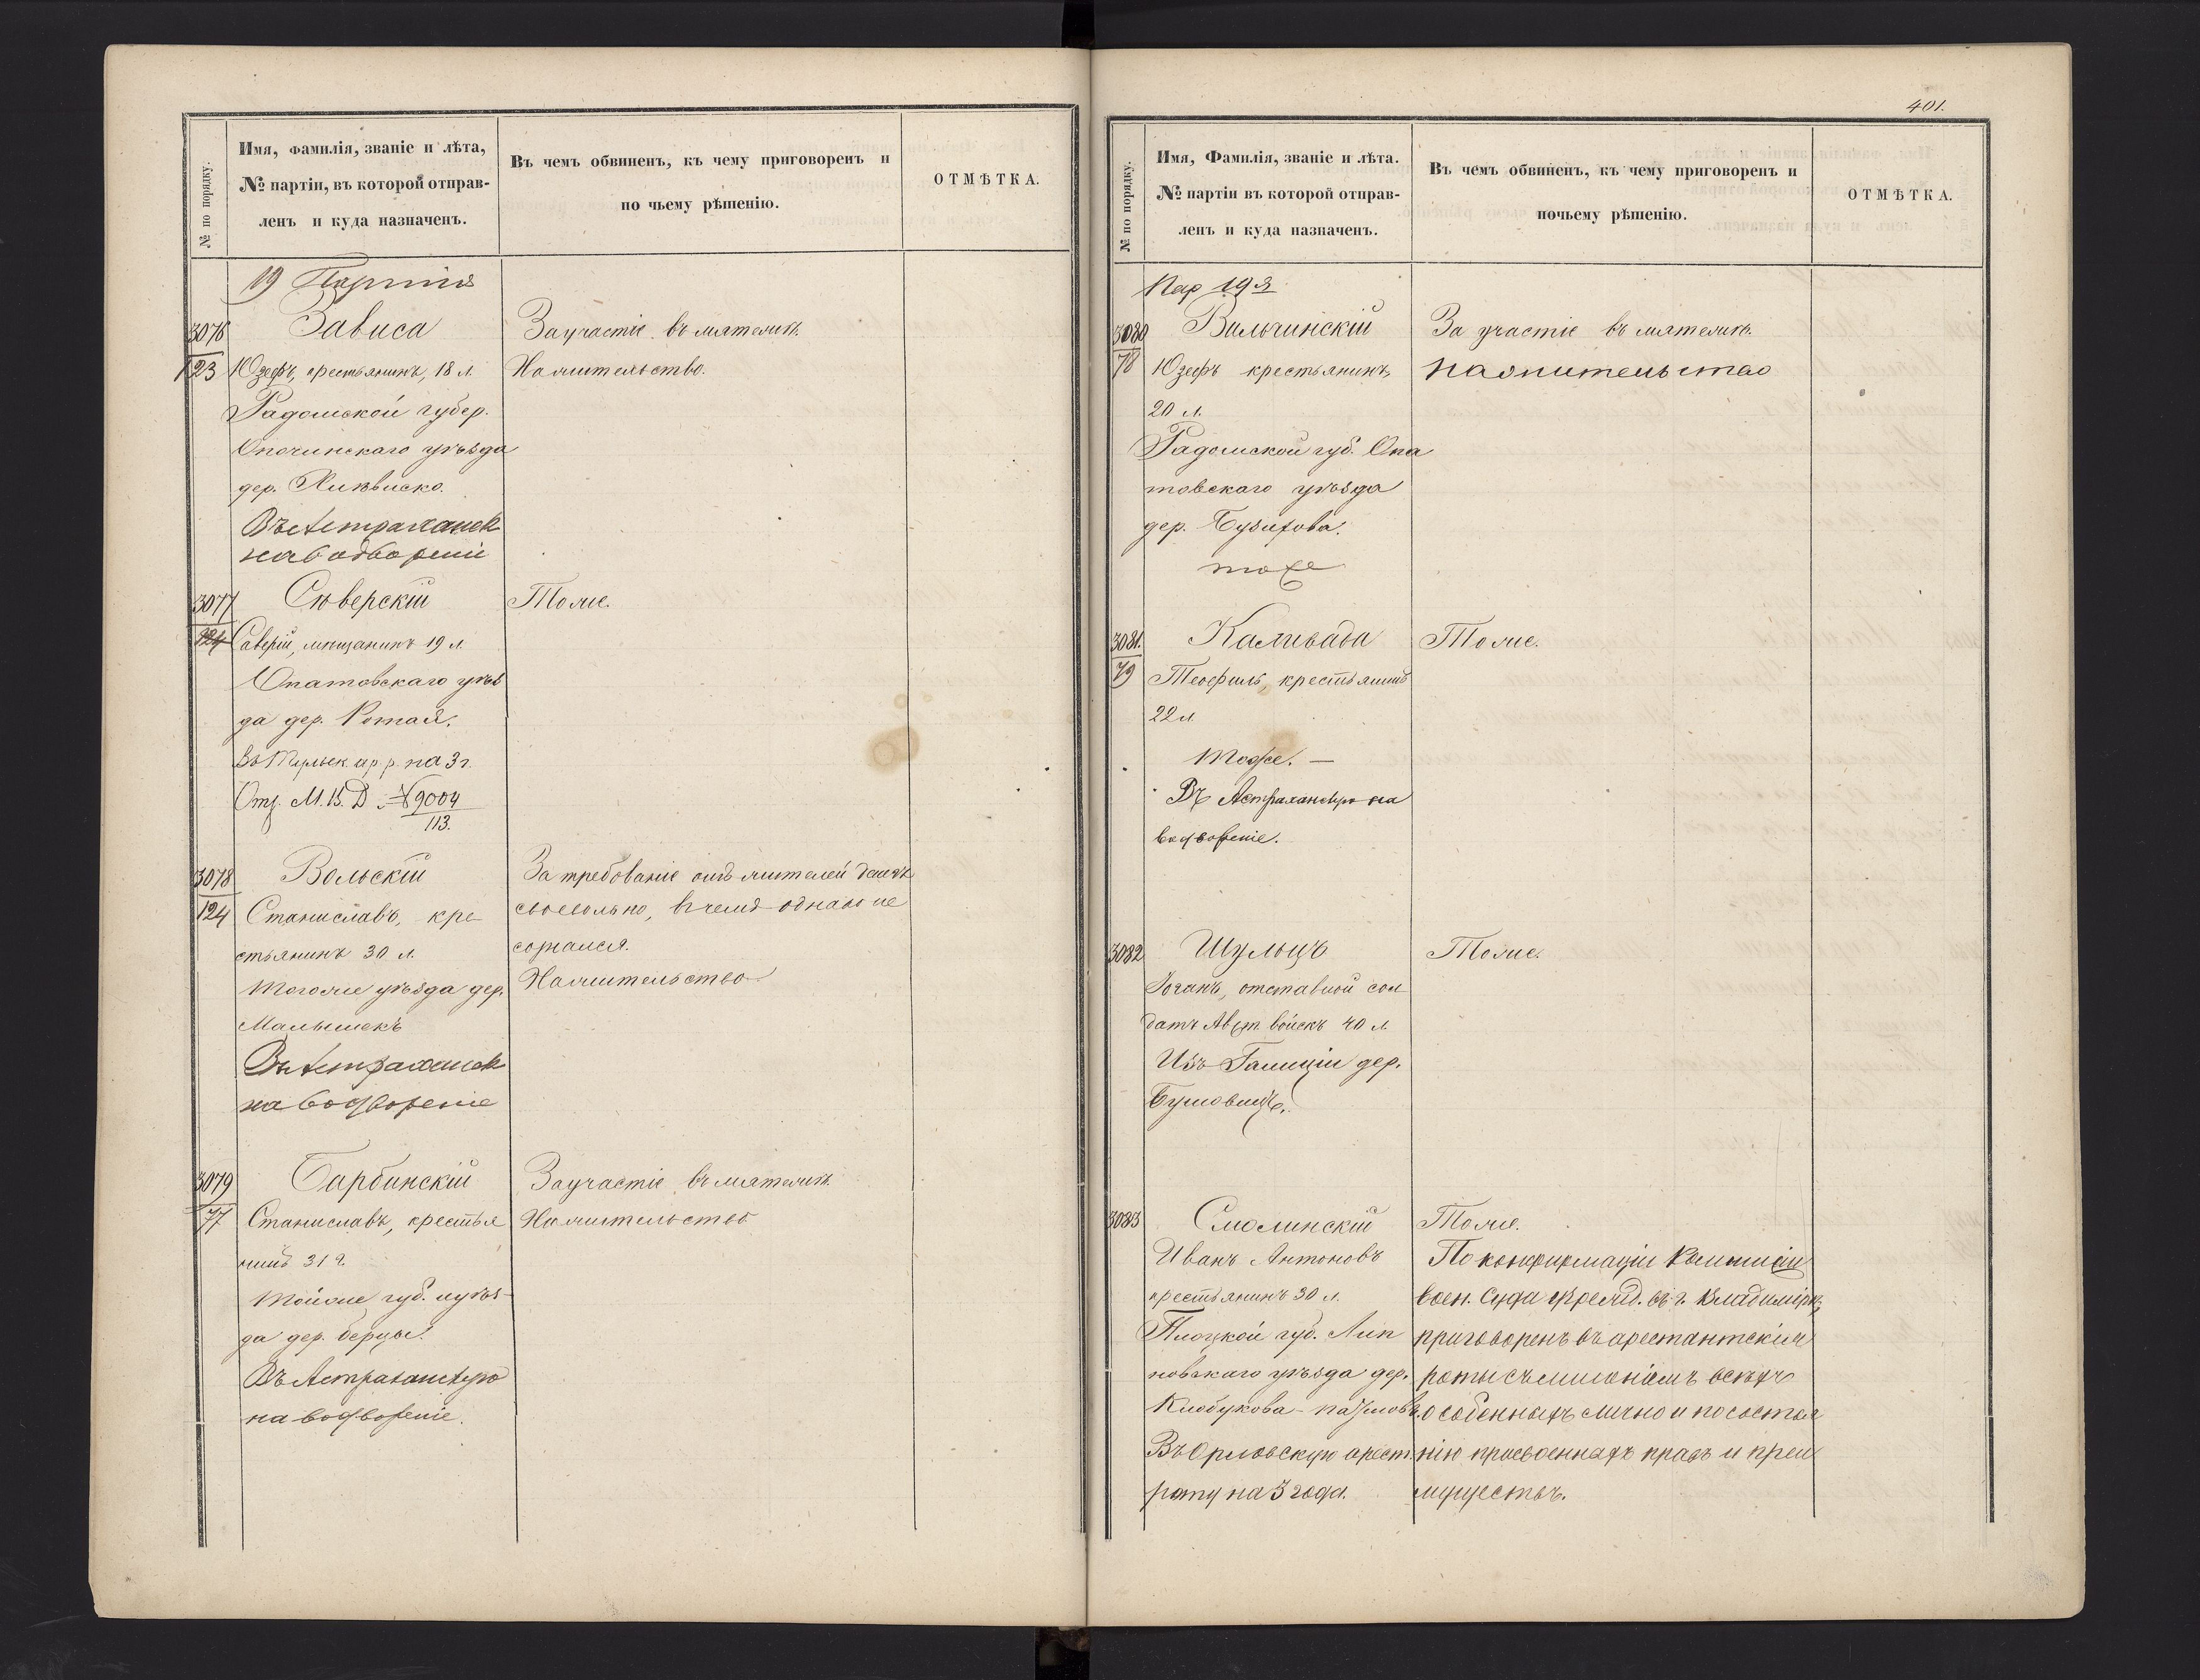 № по порядку.
Имя, фамилія, званіе и лѣта,
№ партіи, въ которой отправ-
ленъ и куда назначенъ.
Въ чемъ обвиненъ, къ чему приговоренъ и
по чьему рѣшенію.
ОТМѢТКА.
19 Партія
3076
123
Зависа
Юзефъ, крестьянинъ, 18 л.
Радомской губер.
Опочинскаго уѣзда
дер.
Въ Астраханск
на водвореніе
За участіе въ мятежѣ.
На жительство.
3077
Сѣверскій
Саверій, мѣщанинъ 19 л.
Опатовскаго уѣз
да дер.
на 3 г.
Отр. М. В. Д. № 9004
113.
Тоже.
3078
124
Вольскій
Станиславъ, кре-
стьянинъ 30 л.
тогоже уѣзда дер.
Малышекъ
Въ Астраханск
на водвореніе
За требованіе отъ жителей денегъ
своевольно, въ чемъ однако не
сознался.
На жительство
3079
77
Барбинскій
Станиславъ, крестья
нинъ 31 г.
тойже губ. и уѣз-
да дер. Берцы.
Въ Астраханскую
на водвореніе.
За участіе въ мятежѣ.
На жительство
401.
№ по порядку.
Имя, Фамилія, званіе и лѣта.
№ партіи въ которой отправ-
ленъ и куда назначенъ.
Въ чемъ обвиненъ, къ чему приговоренъ и
почьему рѣшенію.
ОТМѢТКА.
Пар 19я
3080
78
Вильчинскій
Юзефъ крестьянинъ,
20 л.
Радомской губ. Опа
товскаго уѣзда
дер.
тоже
За участіе въ мятежѣ.
на жительство
3081.
79
Теофиль, крестьянинъ
22 л.
Тоже. —
Въ Астраханскую на
водвореніе.
Тоже.
3082
Шульцъ
Іоганъ, отставной сол
датъ Авст. войскъ 40 л.
Изъ Галиціи дер.
Тоже.
3083
Смолинскій
Иванъ Антоновъ
крестьянинъ 30 л.
Плоцкой губ. Лип
новскаго уѣзда дер.
Клобукова-
Въ Орловскую арест.
роту на 3 года.
Тоже.
По конфирмаціи Коммисіи
воен. Суда учрежд. въ г. Владимірѣ,
приговоренъ въ арестантскія
роты съ лишеніемъ всѣхъ
особенныхъ лично и по состоя
нію присвоенныхъ правъ и преи
муществъ.